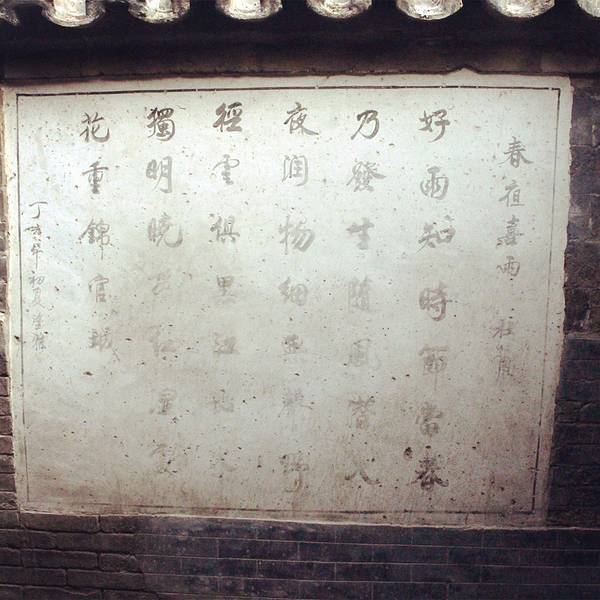 春夜喜雨 杜甫
好雨知時節當春
乃發生隨風潛入
夜润物細無聲野
徑雲俱黑江船火
獨明曉看紅濕處
花重錦官城
丁亥年初夏